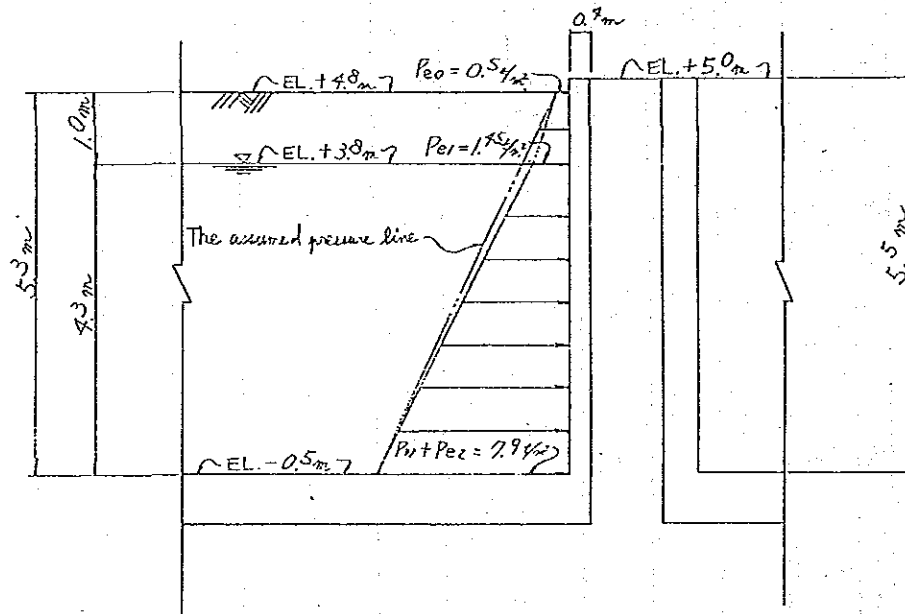 0.4m
EL.+4.8m
Peo = 0.5 t/m²
EL.+5.0m
1.0m
EL.+3.8m
Pe1 = 1.45 t/m²
The assumed pressure line
5.3m
4.3m
5.5m
EL.-0.5m
Pw+Pe2 = 7.9 t/m²